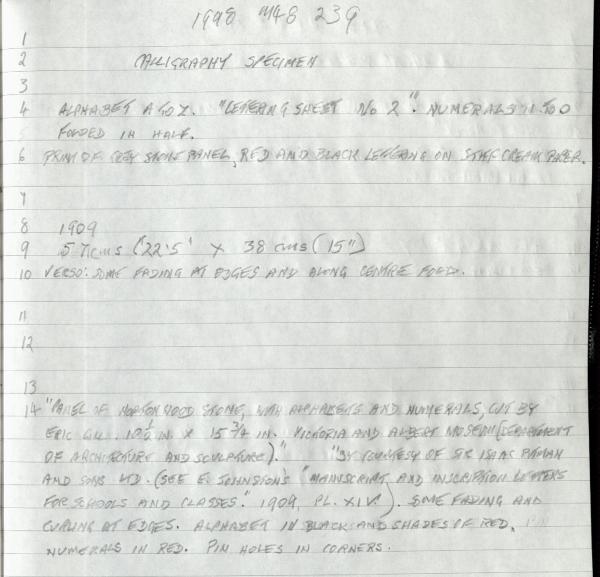 1998 M48 239
1
2 CALLIGRAPHY SPECIMEN
3
4 ALPHABET A TO Z. "LETTERING SHEET No 2". NUMERALS 1 TO 0
5 FOLDED IN HALF.
6 PRINT OF GREY STONE PANEL, RED AND BLACK LETTERING ON STIFF CREAM PAPER.
7
8 1909
9 57cms (22.5" X 38 cms (15")
10 VERSO: SOME FADING AT EDGES AND ALONG CENTRE FOLD.
11
12
13
14 "PANEL OF HOPTONWOOD STONE, WITH ALPHABETS AND NUMERALS, CUT BY
ERIC GILL. 10½ IN. X 15 3/4 IN. VICTORIA AND ALBERT MUSEUM (DEPARTMENT
OF ARCHITECTURE AND SCULPTURE)." "BY COURTESY OF SIR ISAAC PITMAN
AND SONS LTD. (SEE E. JOHNSTON'S "MANUSCRIPT AND INSCRIPTION LETTERS
FOR SCHOOLS AND CLASSES." 1909, PL. XIV). SOME FADING AND
CURLING AT EDGES. ALPHABET IN BLACK AND SHADES OF RED,
NUMERALS IN RED. PIN HOLES IN CORNERS.